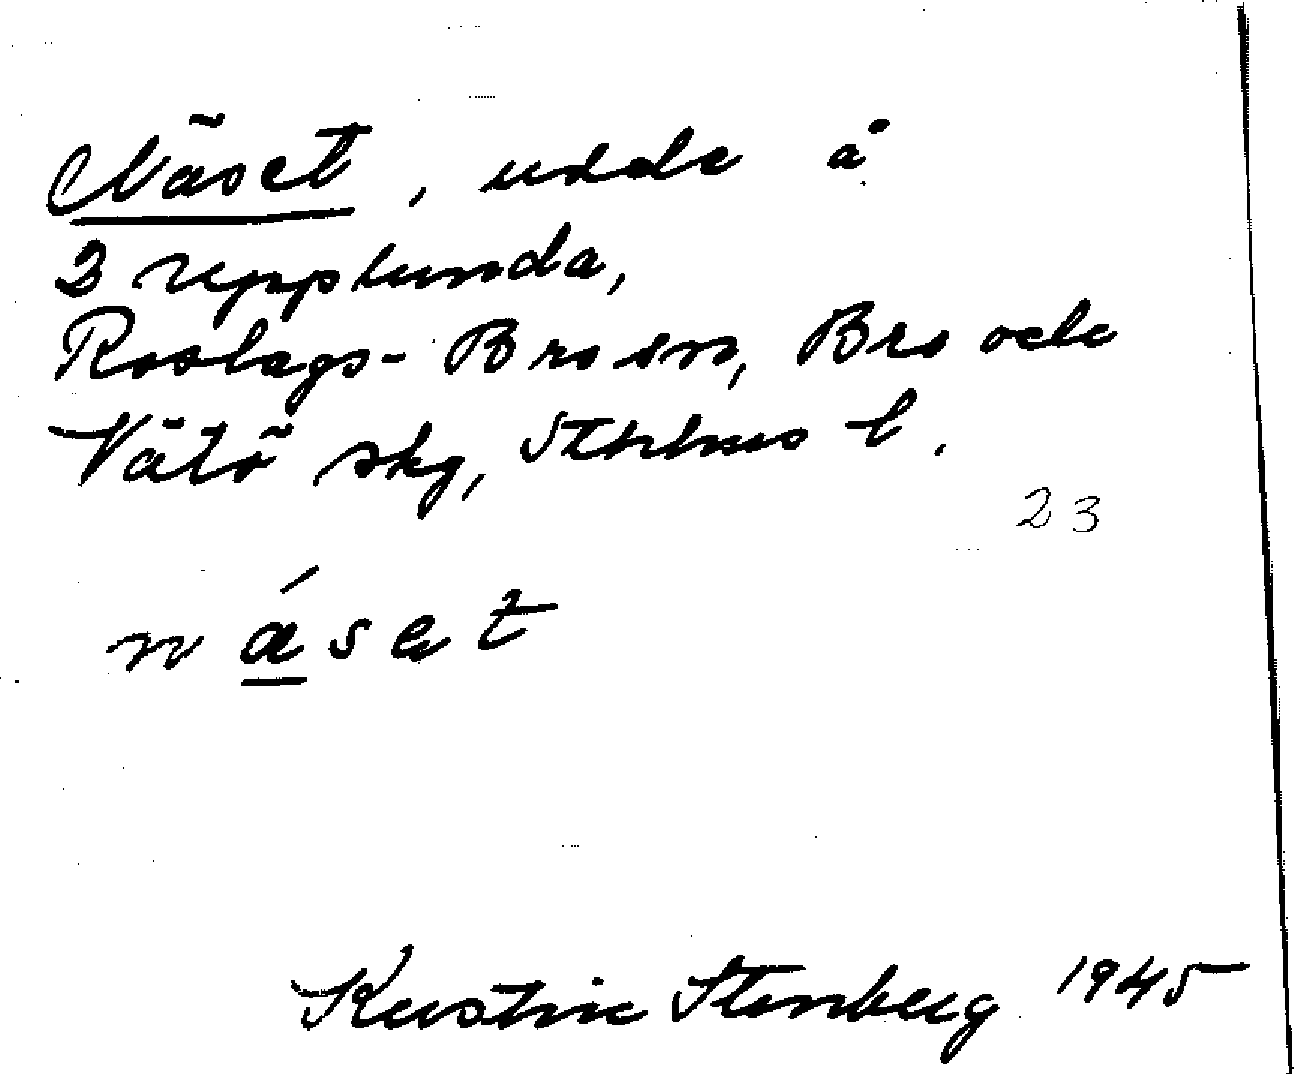 Näset, udde å
2 Upplunda,
Roslags-Bro sn, Bro och
Vätö skg, Sthlms l.
23
näset
Kerstin Stenberg 1945